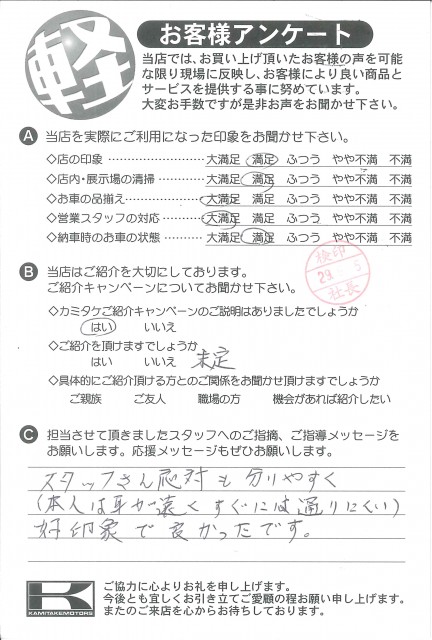 軽
お客様アンケート
当店では、お買い上げ頂いたお客様の声を可能
な限り現場に反映し、お客様により良い商品と
サービスを提供する事に努めています。
大変お手数ですが是非お声をお聞かせ下さい。
A 当店を実際にご利用になった印象をお聞かせ下さい。
◇店の印象 ………………… 大満足 満足 ふつう やや不満 不満
◇店内・展示場の清掃 ………… 大満足 満足 ふつう やや不満 不満
◇お車の品揃え ……………… 大満足 満足 ふつう やや不満 不満
◇営業スタッフの対応 ………… 大満足 満足 ふつう やや不満 不満
◇納車時のお車の状態 ………… 大満足 満足 ふつう やや不満 不満
B 当店はご紹介を大切にしております。
ご紹介キャンペーンについてお聞かせ下さい。
検印
29
5
社長
◇カミタケご紹介キャンペーンのご説明はありましたでしょうか
はい いいえ
◇ご紹介を頂けますでしょうか
はい いいえ 未定
◇具体的にご紹介頂ける方とのご関係をお聞かせ頂けますでしょうか
ご親族 ご友人 職場の方 機会があれば紹介したい
C 担当させて頂きましたスタッフへのご指摘、ご指導メッセージを
お願いします。応援メッセージもぜひお願いします。
スタッフさん応対も分りやすく
(本人は耳が遠くすぐには通りにくい)
好印象で良かったです。
K
KAMITAKEMOTORS
ご協力に心よりお礼を申し上げます。
今後とも宜しくお引き立てご愛顧の程お願い申し上げます。
またのご来店を心からお待ちしております。